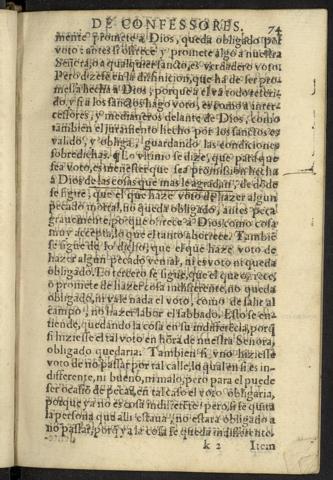 DE CONFESSORES. 74
mente promete a Dios, queda obligado por
voto: antes si ofrece y promete algo a nuestra
Señora, o a qualquier sancto, es verdadero voto.
Pero dizese en la diffinicion, que ha de ser pro-
messa hecha a Dios, porque a el va todo referi-
do, y si a los sanctos hago voto, es como a inter-
cessores, y medianeros delante de Dios, como
tambien el juramento hecho por los sanctos es
valido, y obliga, guardando las condiciones
sobredichas. ¶ Lo vltimo se dize, que para que
sea voto, es menester que sea promission hecha
a Dios de las cosas que mas le agradan, de dōde
se sigue, que el que haze voto de hazer algun
pecado mortal, no queda obligado, antes peca
grauemente, porque ofrece a Dios como cosa
muy accepta, lo que el tanto aborrece. Tambiē
se sigue de lo dicho, que el que haze voto de
hazer algun pecado venial, ni es voto ni queda
obligado. Lo tercero se sigue, que el que ofrece,
o promete de hazer cosa indifferente, no queda
obligado, ni vale nada el voto, como de salir al
campo, no hazer labor el sabbado. Esto se en-
tiende, quedando la cosa en su indifferēcia, porq̄
si hiziesse el tal voto en hōra de nuestra Señora,
obligado quedaria. Tambien si vno hiziesse
voto de no passar por tal calle, lo qual en si es in-
differente, ni bueno, ni malo, pero para el puede
ser ocasiō de pecar, en tal caso el voto obligaria,
porque ya no es cosa indifferēte: pero, si se quita
la persona que alli estaua, no estara obligado a
no passar, porq̄ ya la cosa se queda indifferente.
k 2 Item